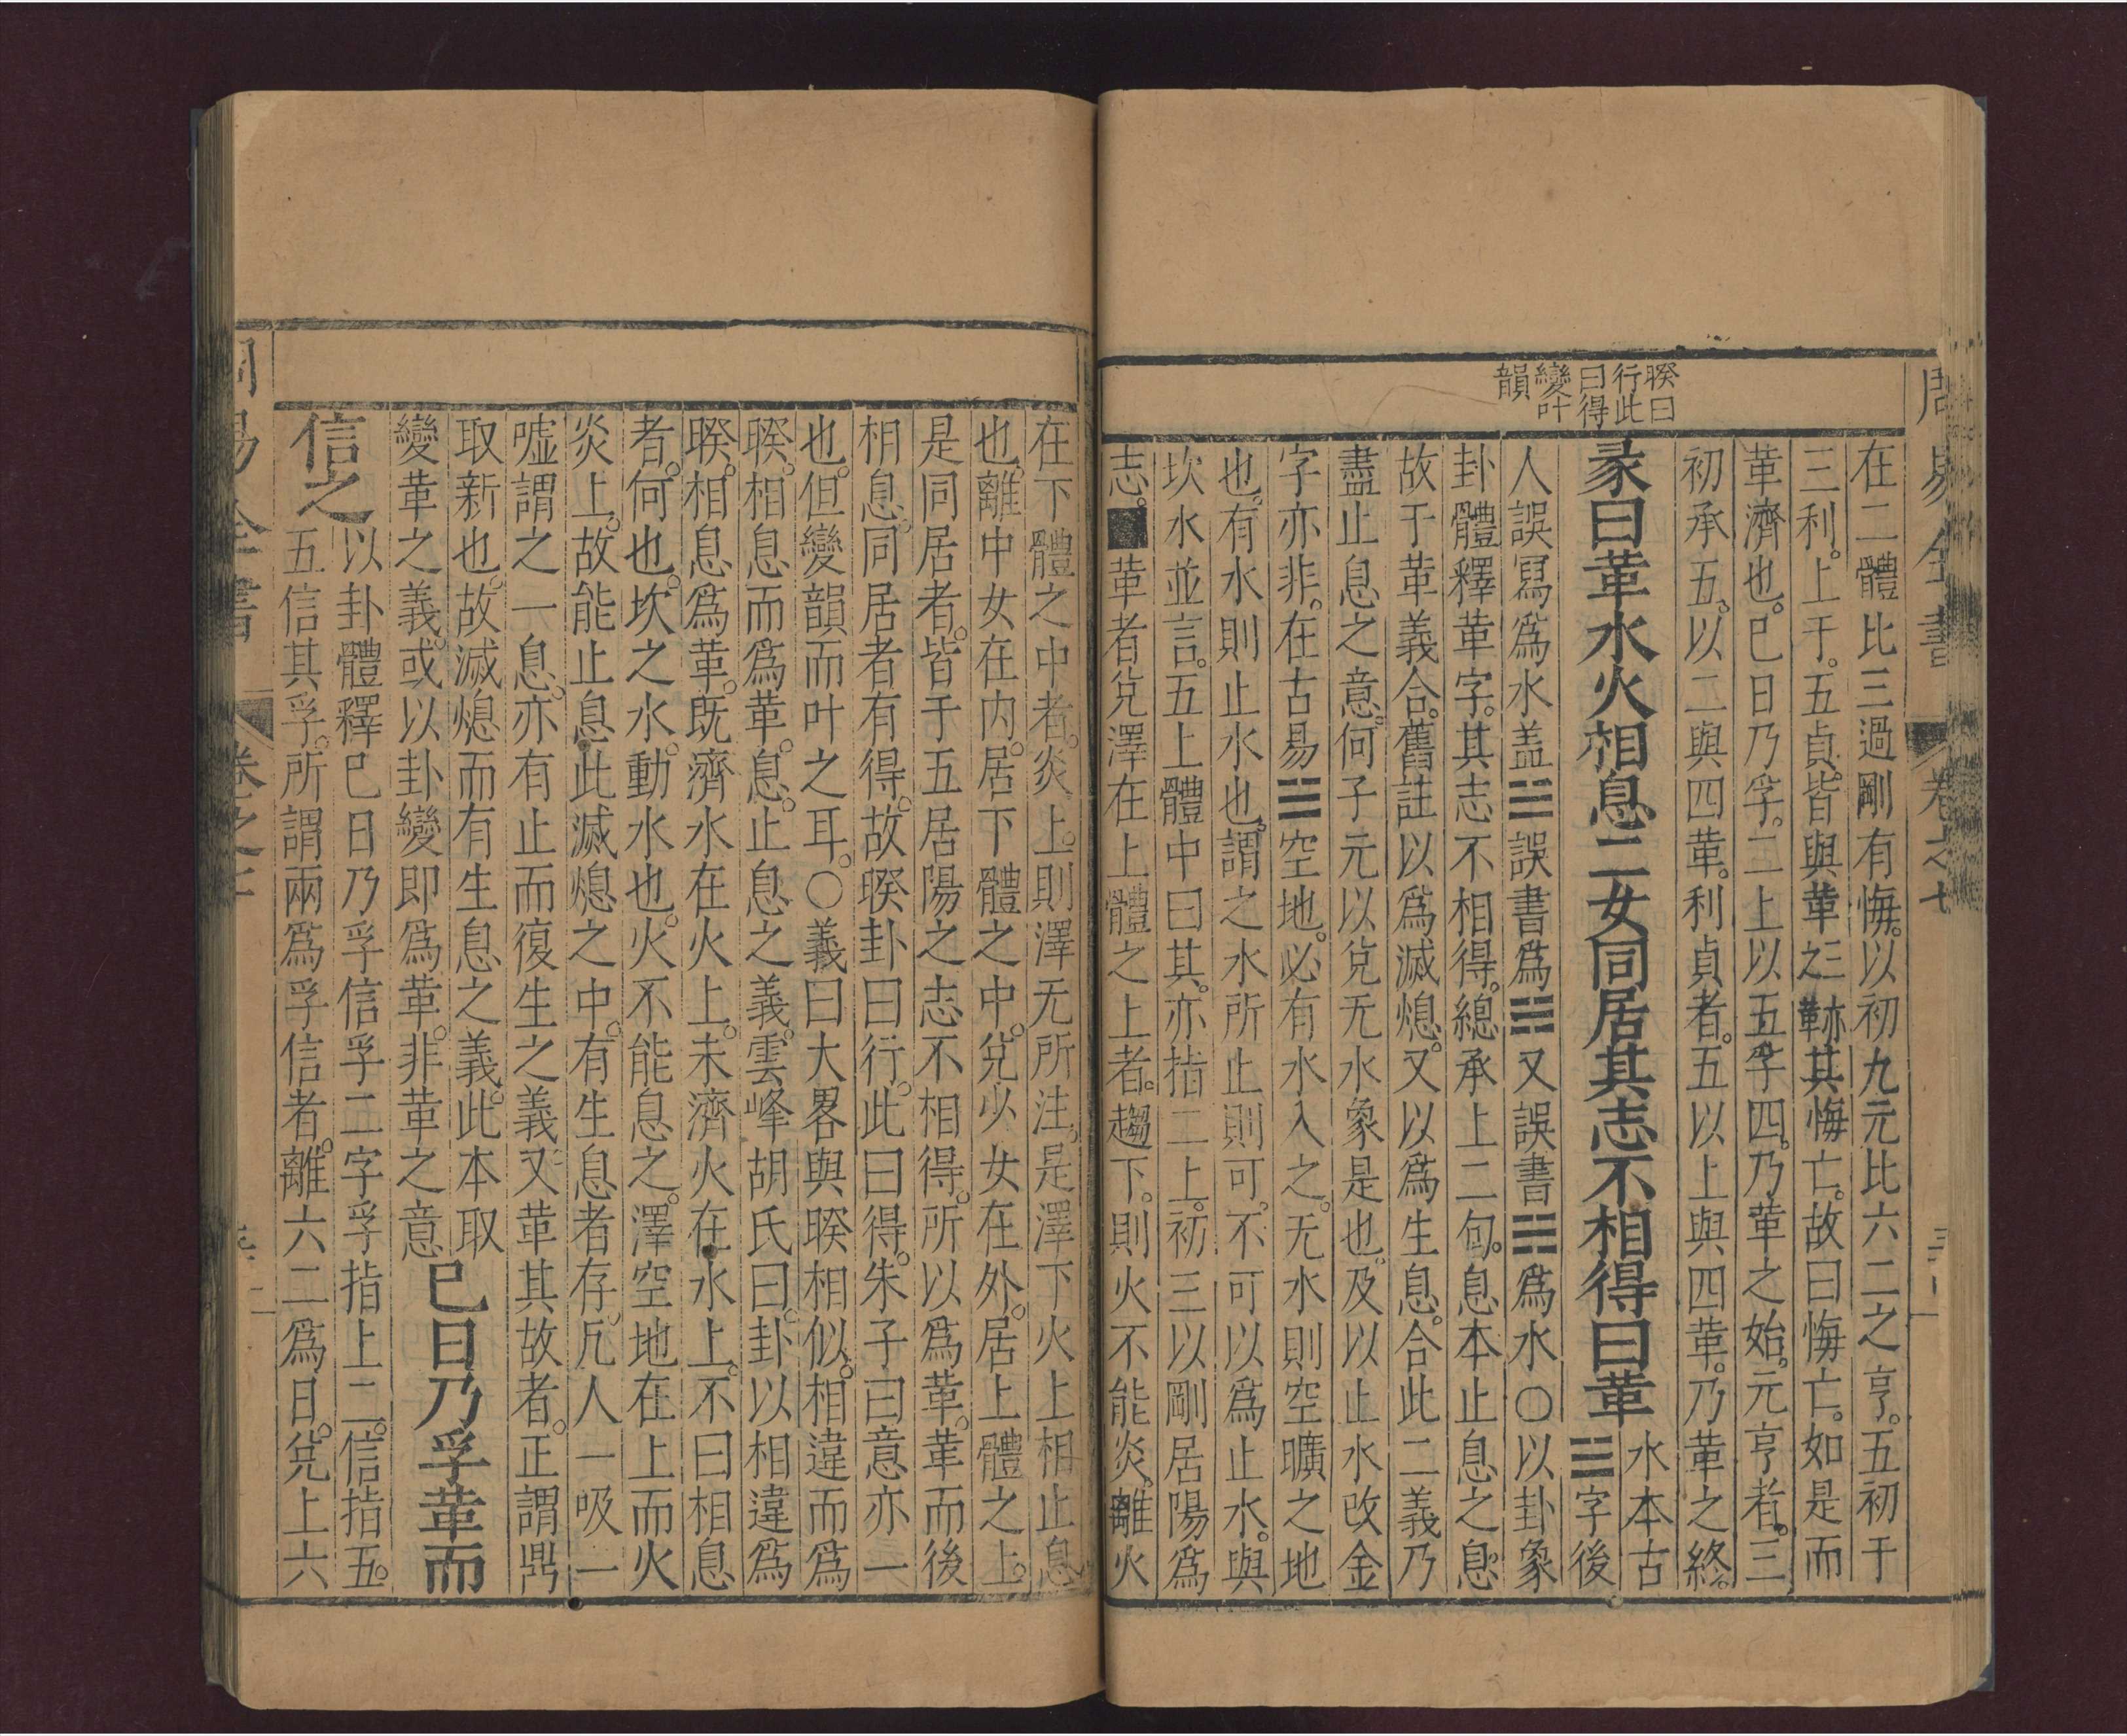 周易全書
卷之七
在二體比三過剛有悔。以初九元比六二之亨。五初于
三利。上于。五貞。皆與革之三。其悔亡。故曰悔亡。如是而
革濟也。巳日乃孚。二上以五孚四。乃革之始。元亨者。三
初承五。以二與四革。利貞者。五以上與四革。乃革之終。
彖曰革水火相息二女同居其志不相得曰革
水本古
☵字後
人誤冩爲水盖☵誤書爲☵又誤書☵爲水○以卦象
卦體釋革字。其志不相得。總承上二句。息本止息之息
故于革義合。舊註以爲滅熄。又以爲生息。合此二義乃
盡止息之意。何子元以兌无水象是也。及以止水改金
字亦非。在古易☵空地。必有水入之。无水則空曠之地
也。有水則止水也。謂之水所止則可。不可以爲止水。與
坎水並言。五上體中曰其。亦指二上。初三以剛居陽爲
志。■革者兌澤在上體之上者。趨下。則火不能炎。離火
睽曰
行此
曰得
變叶
韻
在下體之中者。炎上。則澤无所注。是澤下火上相止息
也。離中女在内。居下體之中。兌少女在外。居上體之上。
是同居者。皆于五居陽之志不相得。所以爲革。革而後
相息。同居者有得。故睽卦曰行。此曰得。朱子曰意亦一
也。但變韻而叶之耳。○義曰大畧與睽相似。相違而爲
睽。相息而爲革。息。止息之義。雲峰胡氏曰。卦以相違爲
睽。相息爲革。既濟水在火上。未濟火在水上。不曰相息
者。何也。坎之水。動水也。火不能息之。澤空地在上而火
炎上。故能止息。此滅熄之中。有生息者存。凡人一吸一
噓謂之一息。亦有止而復生之義又革其故者。正謂鼎
取新也。故滅熄而有生息之義。此本取
變革之義。或以卦變即爲革。非革之意巳日乃孚革而
信之以卦體釋巳日乃孚信孚二字孚指上二。信指五。
五信其孚。所謂兩爲孚信者。離六二爲日。兌上六